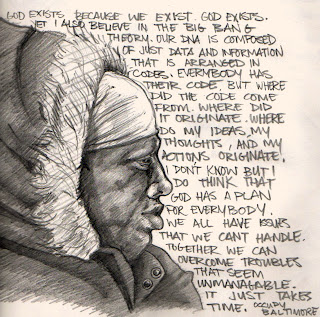 GOD EXISTS BECAUSE WE EXIST. GOD EXISTS.
YET I ALSO BELIEVE IN THE BIG BANG
THEORY. OUR DNA IS COMPOSED
OF JUST DATA AND INFORMATION
THAT IS ARRANGED IN
CODES. EVERYBODY HAS
THEIR CODE, BUT WHERE
DID THE CODE COME
FROM. WHERE DID
IT ORIGINATE. WHERE
DO MY IDEAS, MY
THOUGHTS, AND MY
ACTIONS ORIGINATE.
I DON'T KNOW BUT I
DO THINK THAT
GOD HAS A PLAN
FOR EVERYBODY.
WE ALL HAVE ISSUES
THAT WE CAN'T HANDLE.
TOGETHER WE CAN
OVERCOME TROUBLES
THAT SEEM
UNMANAGABLE.
IT JUST TAKES
TIME. OCCUPY
BALTIMORE